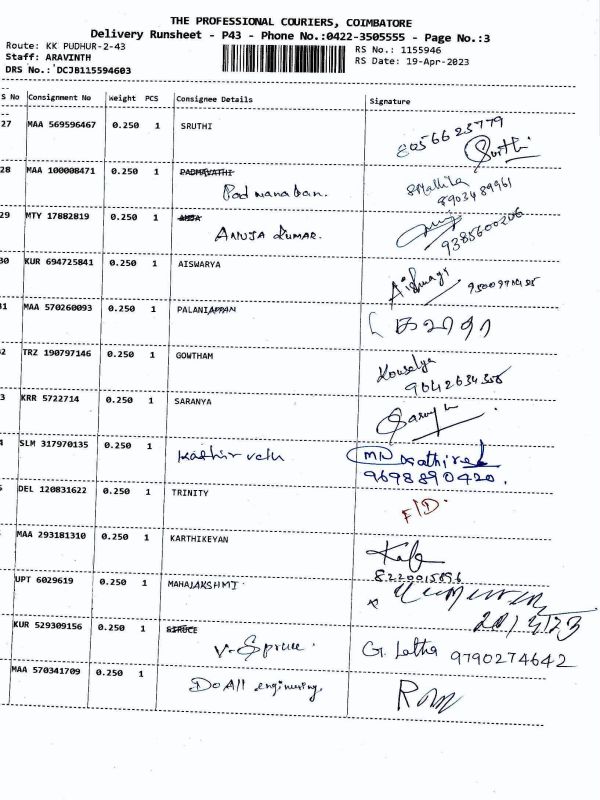 THE PROFESSIONAL COURIERS, COIMBATORE
Delivery Runsheet - P43 - Phone No.:0422-3505555 - Page No.:3
Route: KK PUDHUR-2-43
RS No.: 1155946
Staff: ARAVINTH
RS Date: 19-Apr-2023
DRS No.: DCJB115594603
S No Consignment No Weight PCS Consignee Details Signature
27 MAA 569596467 0.250 1 SRUTHI 8056623779
Sruthi
28 MAA 100008471 0.250 1 PADMAVATHI
Padmanaban. 8903489961
29 MTY 17882819 0.250 1
ANUJA KUMAR. 9385600206
30 KUR 694725841 0.250 1 AISWARYA
31 MAA 570260093 0.250 1 PALANIAPPAN
2 TRZ 190797146 0.250 1 GOWTHAM Kousalya
3 KRR 5722714 0.250 1 SARANYA
4 SLM 317970135 0.250 1 Kathirvelu MN Kathirvel
9698890420.
DEL 120831622 0.250 1 TRINITY F/D.
MAA 293181310 0.250 1 KARTHIKEYAN
8220015896
UPT 6029619 0.250 1 MAHALAKSHMI
20/4/23
KUR 529309156 0.250 1 SIRUCE
V-Spruce. G. Latha 9790274642
MAA 570341709 0.250 1 DoAll engineering.